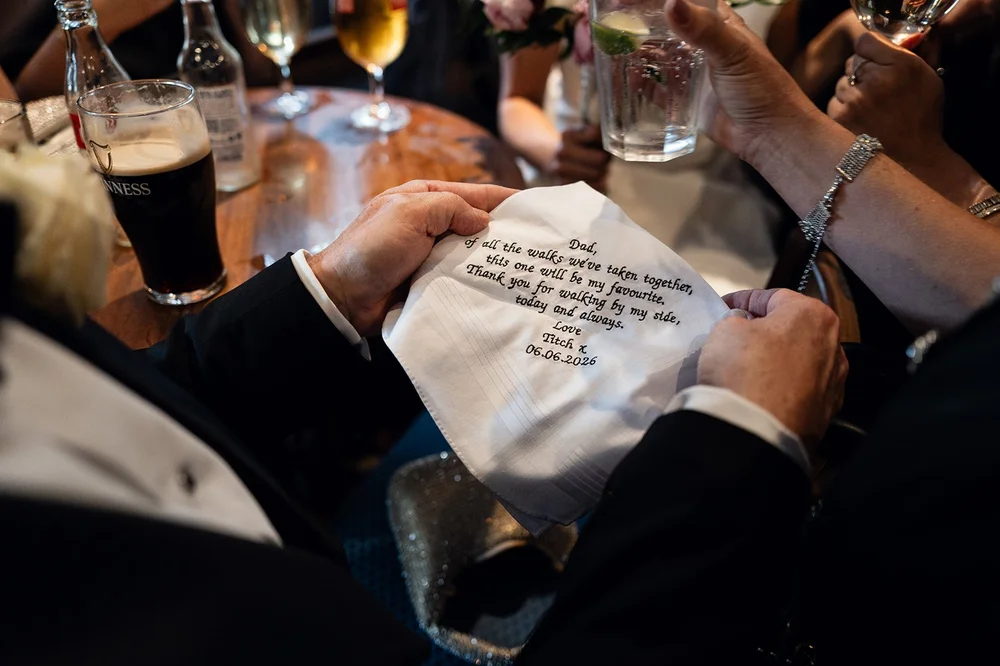 NNESS
Dad,
of all the walks we've taken together,
this one will be my favourite.
Thank you for walking by my side,
today and always.
Love
Titch x
06.06.2026